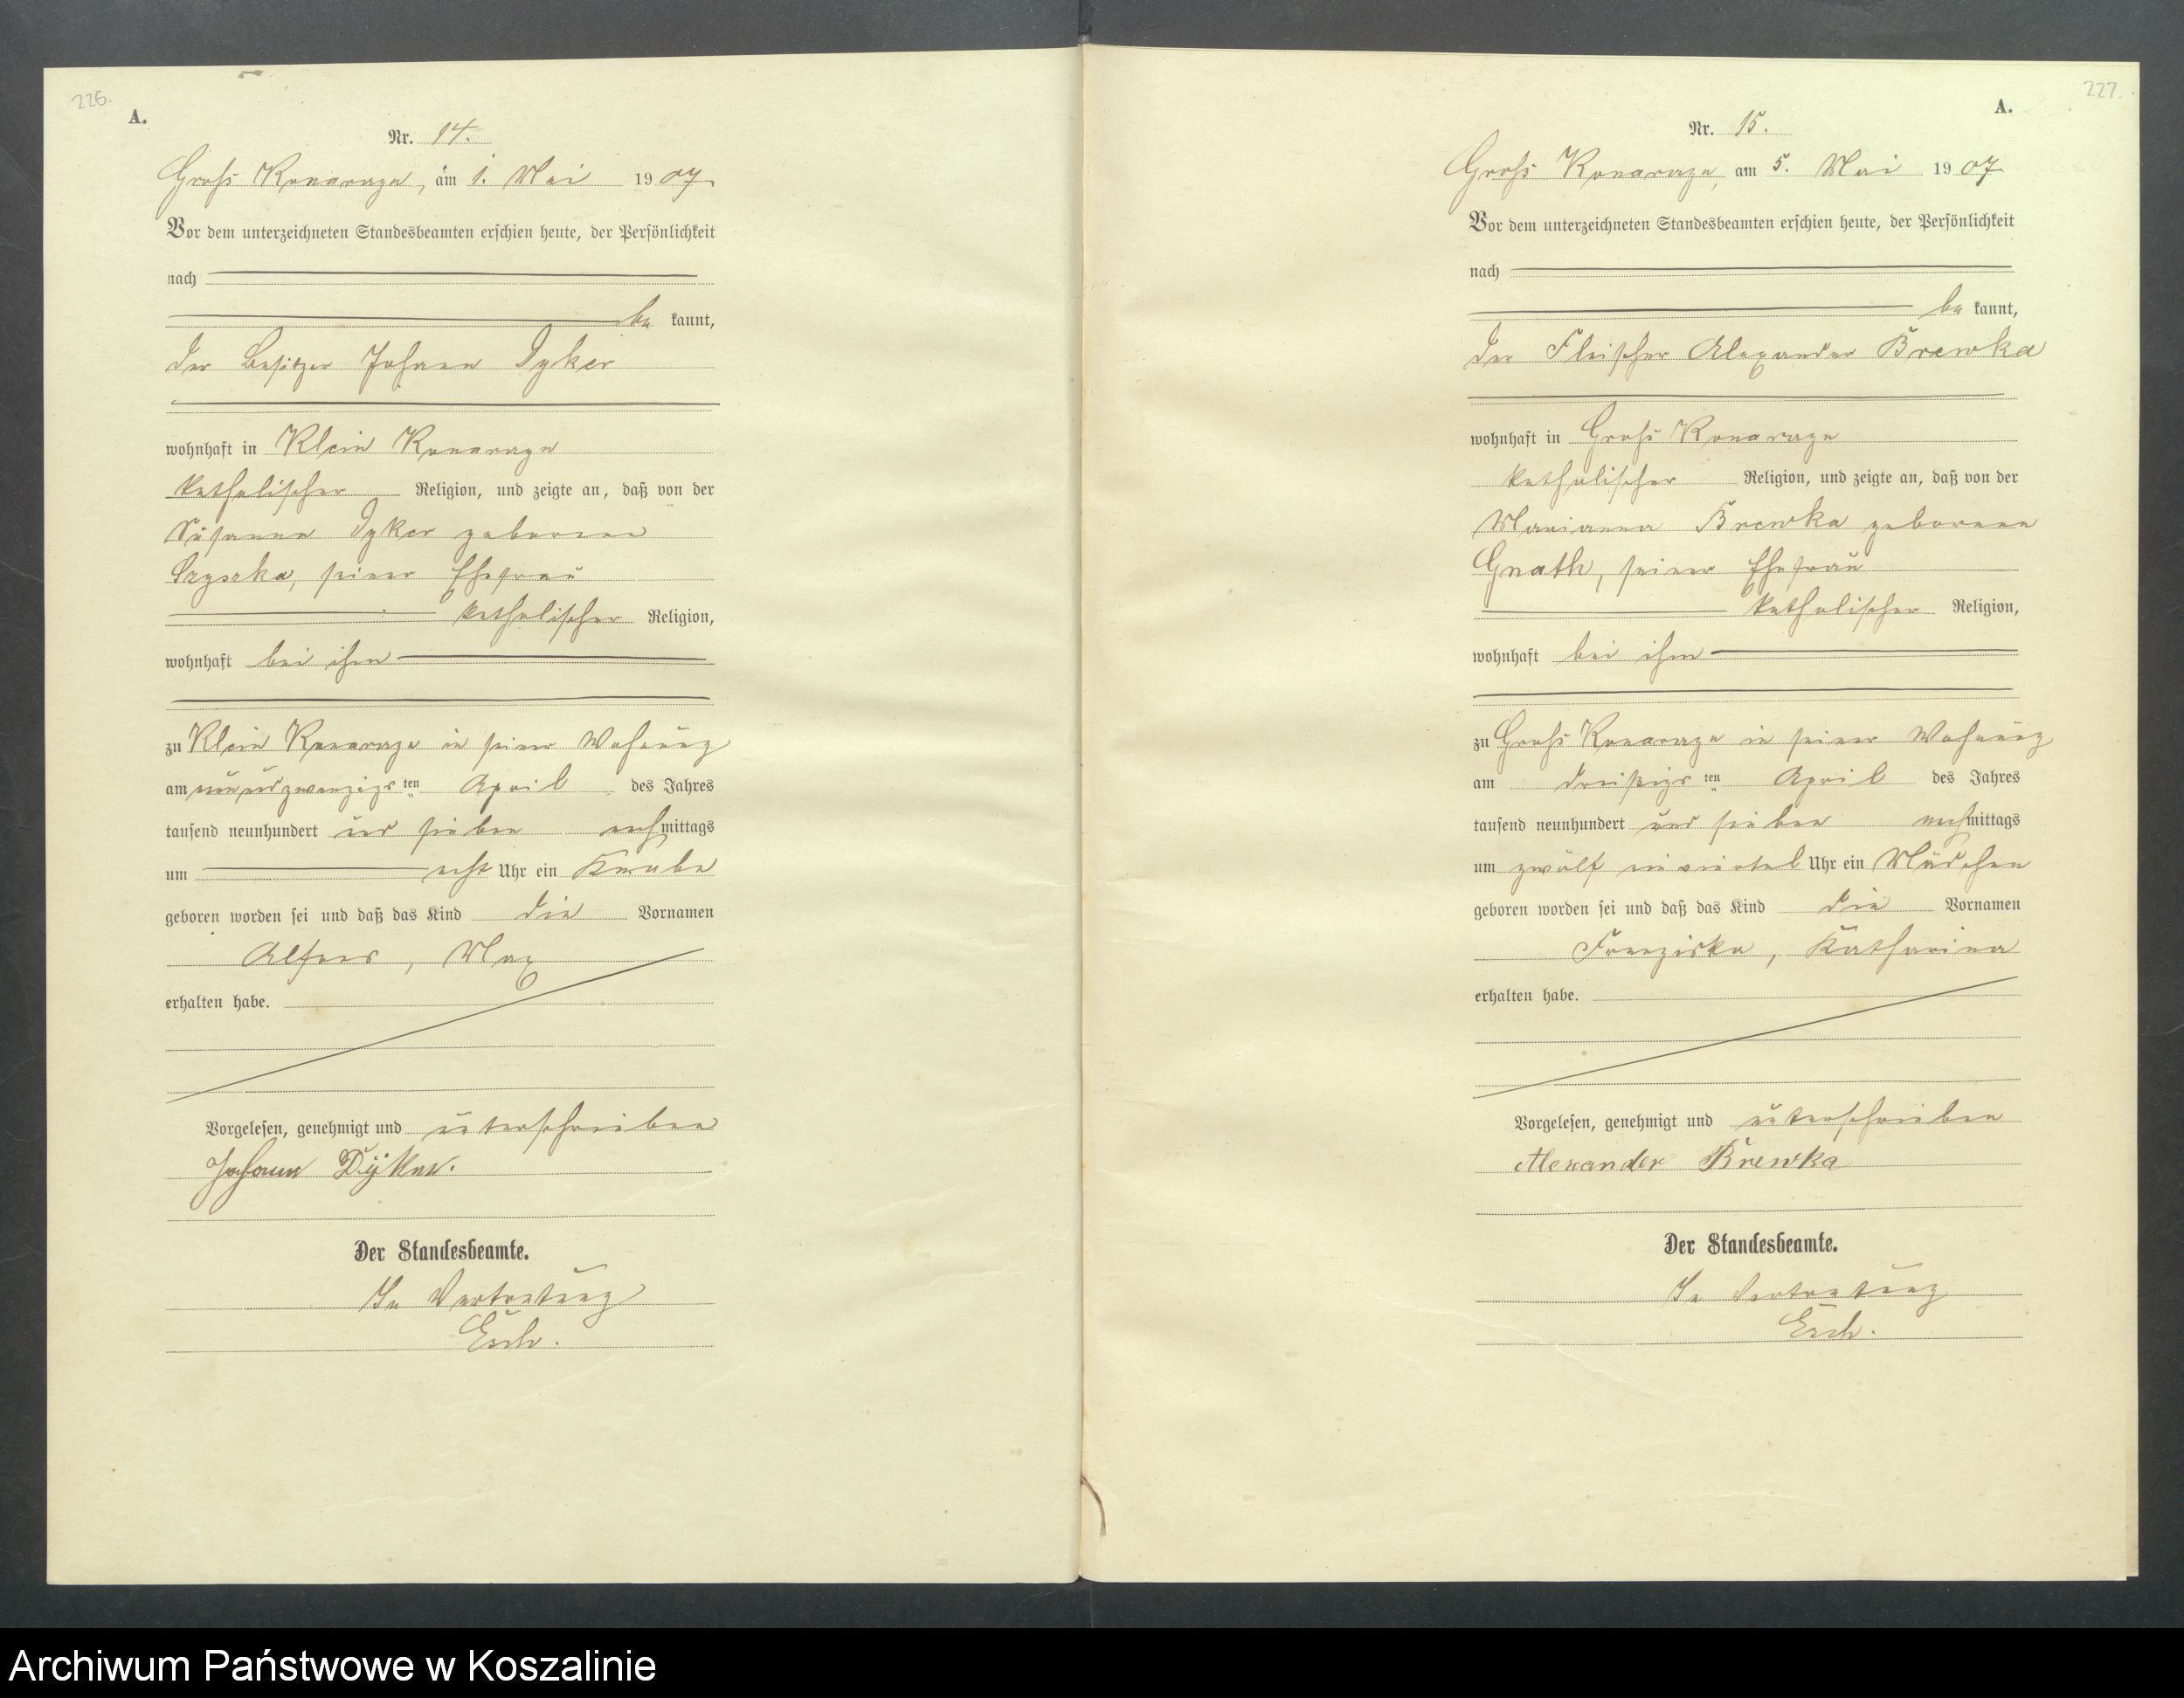 226.
A.
Nr. 14.
Groß Konarczyn, am 1. Mai 1907
Vor dem unterzeichneten Standesbeamten erschien heute, der Persönlichkeit
nach
be kannt,
der Besitzer Johann Dyker
wohnhaft in Klein Konarczyn
katholischer Religion, und zeigte an, daß von der
Susanna Dyker geborenen
Szyszka, seiner Ehefrau
katholischer Religion,
wohnhaft bei ihm
zu Klein Konarczyn in seiner Wohnung
am neunundzwanzigs ten April des Jahres
tausend neunhundert und sieben nachmittags
um acht Uhr ein Knabe
geboren worden sei und daß das Kind die Vornamen
Alfons, Max
erhalten habe.
Vorgelesen, genehmigt und unterschrieben
Johann Dÿker.
Der Standesbeamte.
In Vertretung
227.
A.
Nr. 15.
Groß Konarczyn, am 5. Mai 1907
Vor dem unterzeichneten Standesbeamten erschien heute, der Persönlichkeit
nach
be kannt,
der Fleischer Alexander Brewka
wohnhaft in Groß Konarczyn
katholischer Religion, und zeigte an, daß von der
Marianna Brewka geborenen
Gnath, seiner Ehefrau
katholischer Religion,
wohnhaft bei ihm
zu Groß Konarczyn in seiner Wohnung
am dreißigs ten April des Jahres
tausend neunhundert und sieben nachmittags
um zwölf ein viertel Uhr ein Mädchen
geboren worden sei und daß das Kind die Vornamen
Franziska, Katharina
erhalten habe.
Vorgelesen, genehmigt und unterschrieben
Alexander Brewka
Der Standesbeamte.
In Vertretung
Archiwum Państwowe w Koszalinie